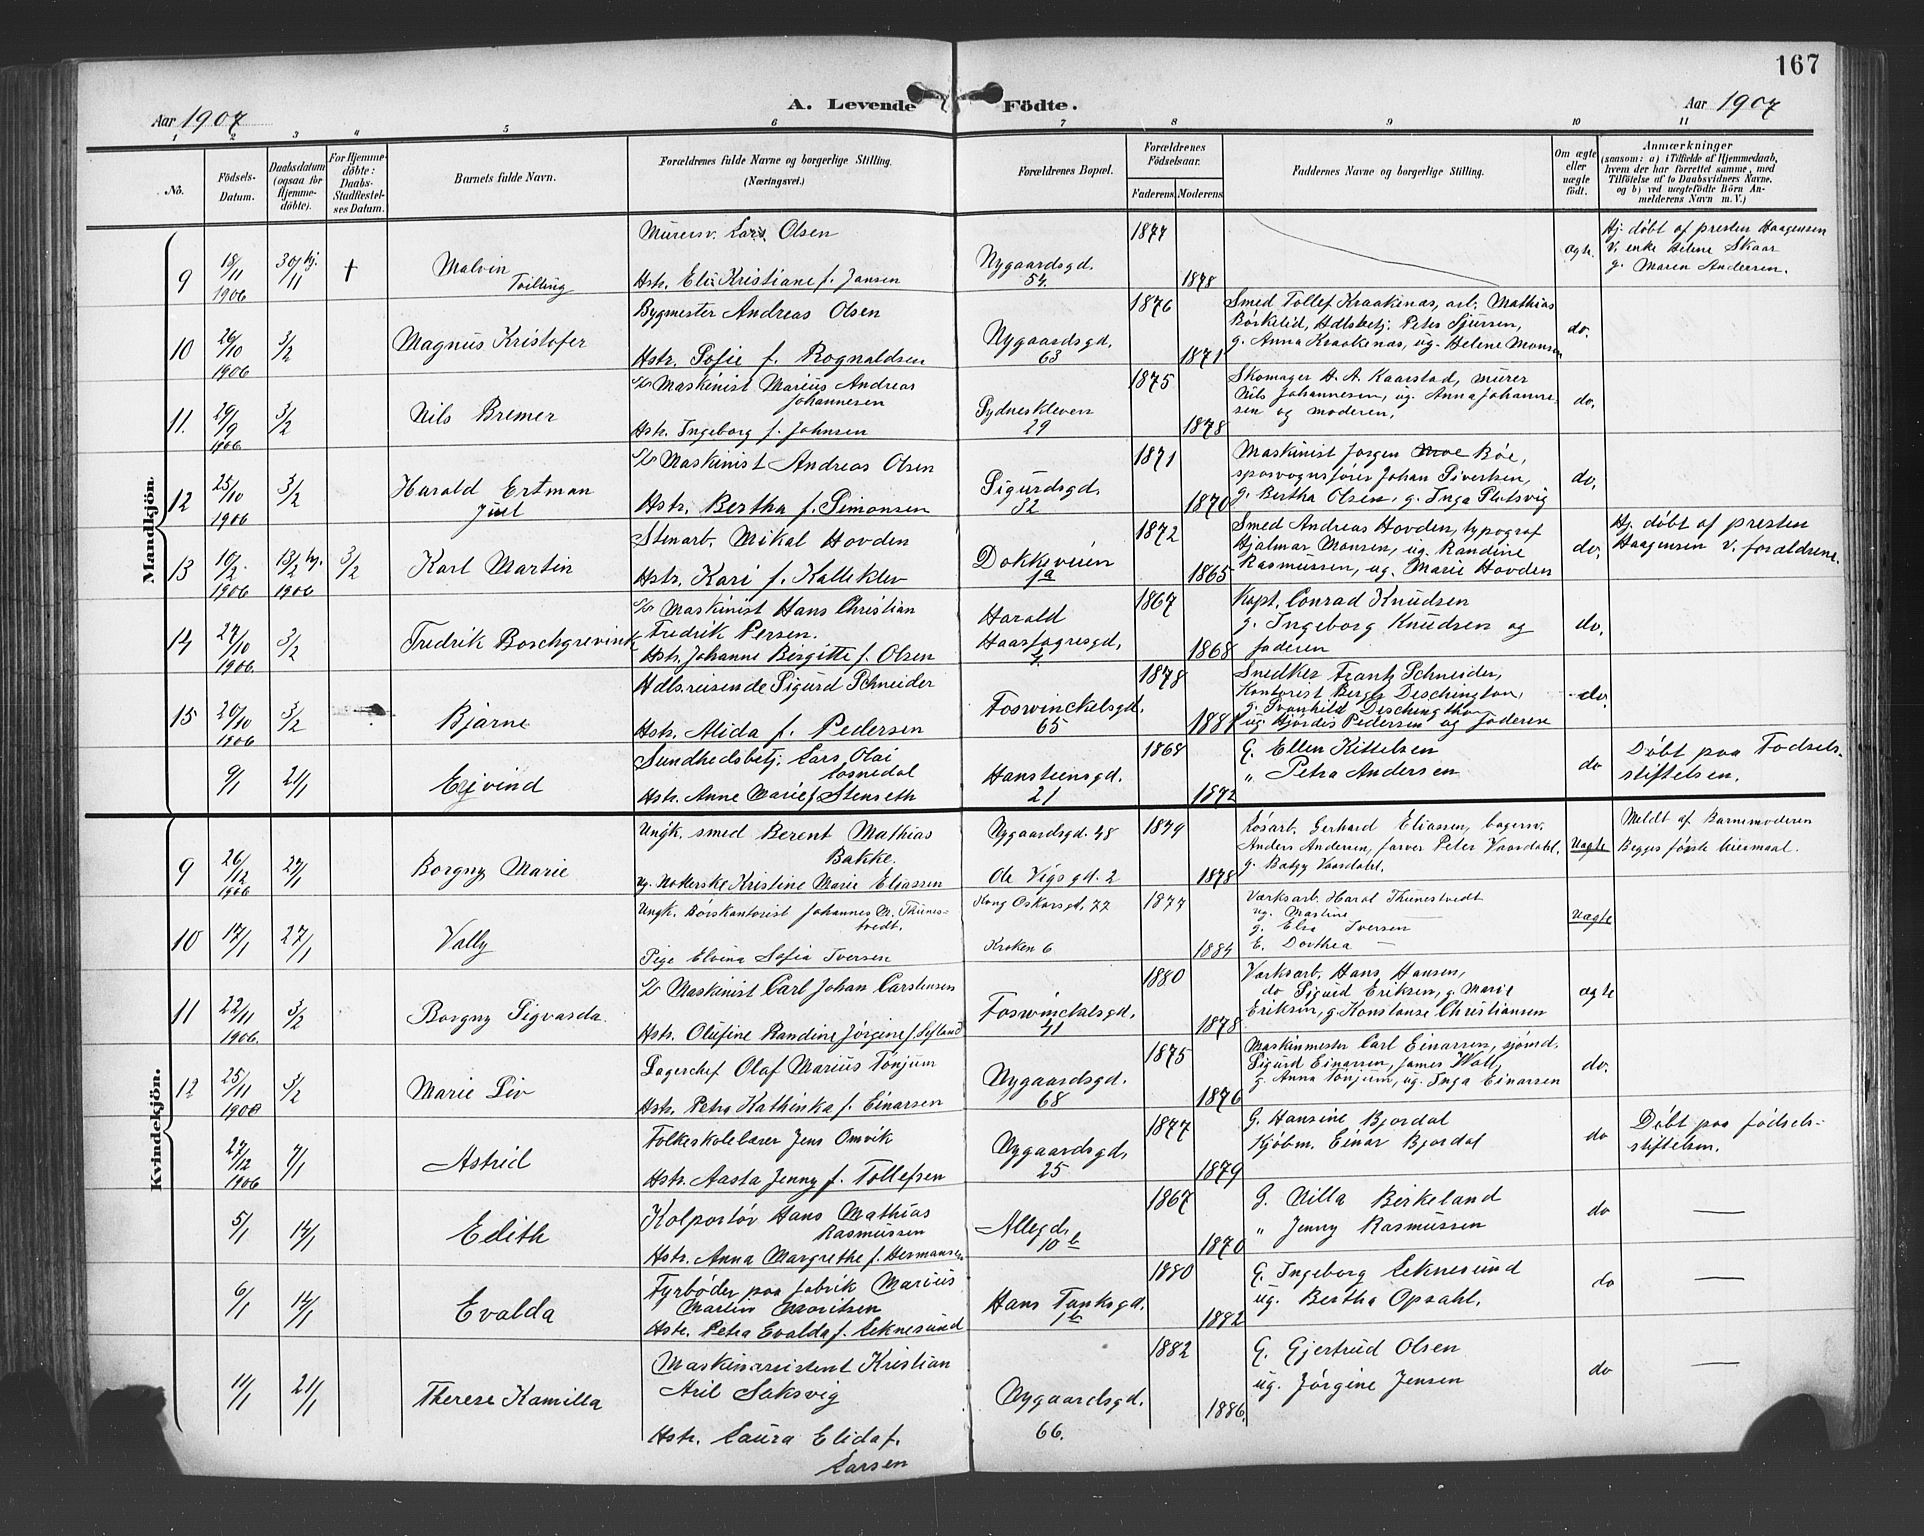 167
A. Levende Födte.
Aar 1907
Aar 1907
1 2 3 4 5 6 7 8 9 10 11
No.
Födsels-Datum.
Daabsdatum (ogsaa for Hjemme-döbte).
For Hjemme-döbte: Daabs-Stadfestel-ses Datum.
Barnets fulde Navn.
Forældrenes fulde Navne og borgerlige Stilling.
(Næringsvei.)
Forældrenes Bopæl.
Forældrenes Födselsaar.
Faderens Moderens
Faddernes Navne og borgerlige Stilling.
Om ægte eller uægte födt.
Anmærkninger
(saasom: a) i Tilfælde af Hjemmedaab,
hvem der har forrettet samme, med
Tilföielse af to Daabsvidners Navne,
og b) ved uægtefödte Börn An-
melderens Navn m. V.)
Mandkjön.
9 18/11 1906 30/11 hj. † Malvin Tvilling
Murersv. Lars Olsen
Hstr. Elis Kristiane f. Jansen
Nygaardsgd. 54.
1877 1878
ægte
Hj. döbt af presten Haagensen
v. enke Helene Skaar
g. Maren Andersen.
10 26/10 1906 3/2 Magnus Kristofer
Bygmester Andreas Olsen
Hstr. Sofie f. Rognaldsen
Nygaardsgd. 63
1876 1871
Smed Tollef Kraakenæs, arb. Mathias
Börkelid, Hdlsbetj. Peter Sjursen,
g. Anna Kraakenæs, ug. Helene Monsen
do.
11. 29/9 1906 3/2 Nils Bremer
Maskinist Marius Andreas
Johannesen
Hstr. Ingeborg f. Johnsen
Sydneskleven 29
1875 1878
Skomager H. A. Kaarstad, murer
Nils Johannesen, ug. Anna Johanne-
sen og moderen.
do.
12 25/10 1906 3/2 Harald Ertman Juel
Maskinist Andreas Olsen
Hstr. Bertha f. Simonsen
Sigurdsgd. 32
1871 1870
Maskinist Jørgen Moe Bøe,
sporvognsfører Johan Sivertsen,
g. Bertha Olsen, g. Inga Slotsvig
do.
13 10/2 1906 13/2 hj. 1906 3/2 Karl Martin
Stenarb. Mikal Hovden
Hstr. Kari f. Kalleklev
Dokkeveien 1a
1872 1865
Smed Andreas Hovden, typograf
Hjalmar Monsen, ug. Randine
Rasmussen, ug. Marie Hovden
do.
Hj. döbt af presten
Haagensen v. forældrene.
14 27/10 1906 3/2 Fredrik Boschgrevink
Maskinist Hans Christian
Fredrik Persen.
Hstr. Johanne Birgitte f. Olsen
Harald Haarfagresgd. 4.
1867 1868
Kapt. Conrad Knudsen
g. Ingeborg Knudsen og
faderen
do.
15 20/10 1906 3/2 Bjarne
Hdls.reisende Sigurd Schneider
Hstr. Alida f. Pedersen
Foswinckelsgd. 65
1878 1881
Snedker Frantz Schneider,
Kontorist Berge Deschington,
g. Svanhild Deschington
ug. Hjørdis Pedersen og faderen
do.
9/1 21/1 Ejvind
Sundhedsbetj. Lars Olai
Losnedal
Hstr. Anne Marie f. Stenseth
Hansteensgd. 21
1868 1872
G. Ellen Kittelsen
" Petra Andersen
do
Döbt paa Fødsels-
stiftelsen.
Kvindekjön.
9 26/12 1906 27/1 Borgny Marie
Ungk. smed Berent Mathias
Bakke.
ug. Nokerske Kristine Marie Eliassen
Nygaardsgd. 48
Ole Vigsgd. 2
1879 1878
Løsarb. Gerhard Eliassen, bagersv.
Anders Andersen, farver Peter Vaardahl,
g. Batzy Vaardahl.
Uægte
Meldt af Barnemoderen
Begges første leiermaal.
10 17/1 27/1 Vally
Ungk. Börskontorist Johannes M. Thunes-
tvedt.
Pige Elvina Sofia Iversen
Kong Oskarsgd. 77
Kroken 6
1877 1884
Værksarb. Harol Thunestvedt
ug. Martine —
g. Elsa Iversen
E. Dorthea —
Uægte
11 22/11 1906. 3/2 Borgny Sigvarda
Maskinist Carl Johan Carstensen
Hstr. Olufine Randine Jørgine f. Sylland
Foswinckelsgd. 41
1880 1878
Værksarb. Hans Hansen,
do Sigurd Eriksen, g. Marie
Eriksen, g. Konstanse Christiansen
ægte
12 25/11 1906 3/2 Marie Liv
Lagerchef Olaf Marius Tønjum
Hstr. Petra Kathinka f. Einarsen
Nygaardsgd. 68
1875 1876
Maskinmester Carl Einarsen, sjømd.
Sigurd Einarsen, James Wall,
g. Anna Tønjum, ug. Inga Einarsen
do.
27/12 1906 7/1 Astrid
Folkeskolelærer Jens Omvik
Hstr. Aasta Jenny f. Tollefsen
Nygaardsgd. 25
1877 1879
G. Hansine Bjordal
Kjøbm. Einar Bjordal
do
Döbt paa fødsels-
stiftelsen.
5/1 14/1 Edith
Kolportør Hans Mathias
Rasmussen
Hstr. Anna Margrethe f. Hermansen
Allegd. 10 b
1867 1870
G. Nilla Birkeland
" Jenny Rasmussen
do —
6/1 14/1 Evalda
Fyrbøder paa fabrik Marius
Martin Moritsen
Hstr. Petra Evalda f. Leknesund
Hans Tanksgd. 1 b
1880 1882
G. Ingeborg Leknesund
ug. Bertha Opsahl.
do —
11/1 21/1 Therese Kamilla
Maskinassistent Kristian
Aril Saksvig
Hstr. Laura Elida f.
Larsen
Nygaardsgd. 66.
1882 1886.
G. Gjertrud Olsen
ug. Jørgine Jensen
do —